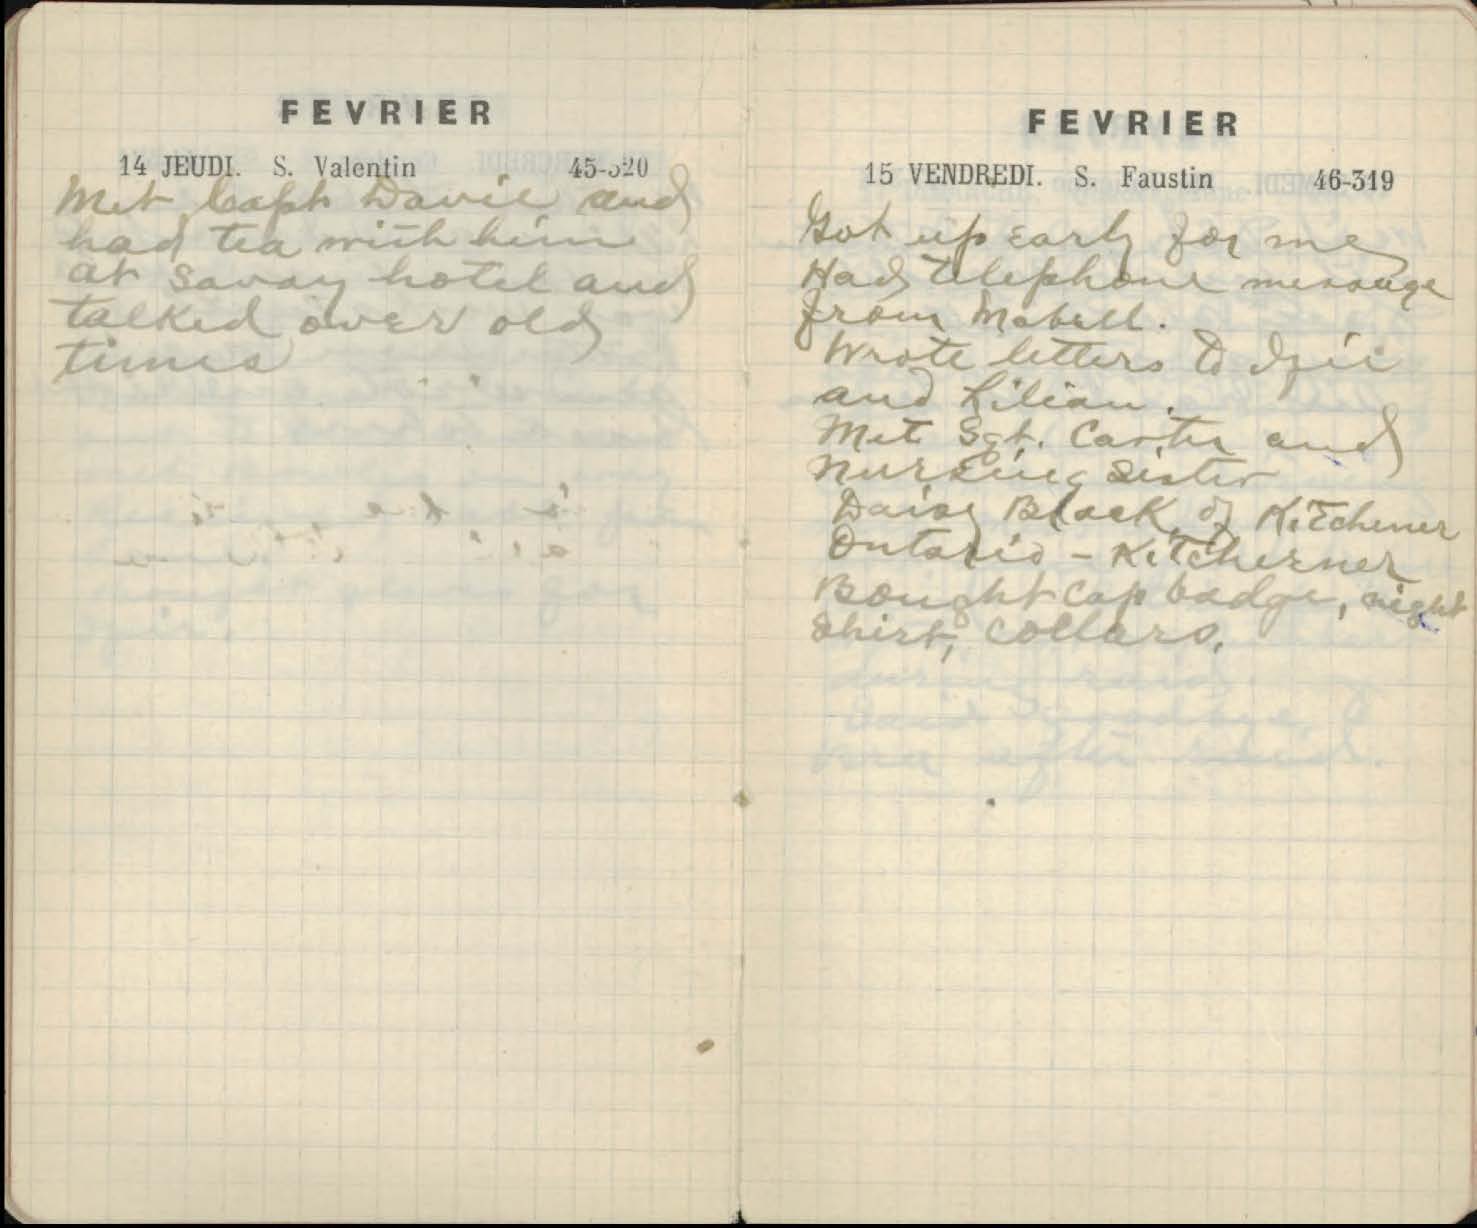 FEVRIER
14 JEUDI. S. Valentin 45-320
Met Capt Davie and
had tea with him
at Savoy hotel and
talked over old
times
FEVRIER
15 VENDREDI. S. Faustin 46-319
Got up early for me
Had telephone message
from Mabell.
Wrote letters to
and Lilian.
Met Sgt. Carter and
Nursing Sister
Daisy Black of Kitchener
Ontario - Kitcherner
Bought cap badge, night
shirt, collars.